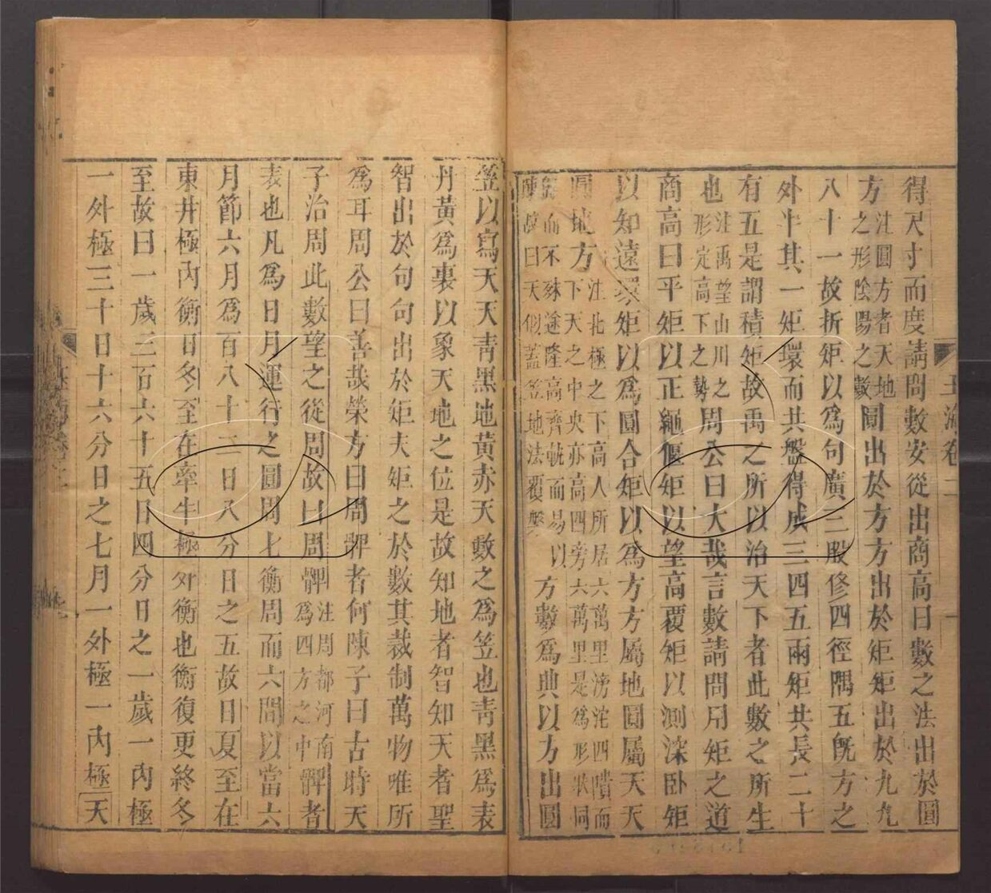 得尺寸而度請問數安從出商高曰數之法出於圓
方注圓方者天地之形陰陽之數圓出於方方出於矩矩出於九九
八十一故折矩以爲句廣三股修四徑隅五旣方之
外半其一矩環而共盤得成三四五兩矩共長二十
有五是謂積矩故禹之所以治天下者此數之所生
也注禹望山川之形定高下之勢周公曰大哉言數請問用矩之道
商高曰平矩以正繩偃矩以望高覆矩以測深卧矩
以知遠環矩以爲圓合矩以爲方方屬地圓屬天天
圓地方注北極之下高人所居六萬里滂沱四隤而下天之中央亦高四旁六萬里是爲形狀同
而不殊途隆高齊軌而易以陳故曰天似蓋笠地法覆槃方數爲典以方出圓
笠以寫天天青黑地黃赤天數之爲笠也青黑爲表
丹黃爲裏以象天地之位是故知地者智知天者聖
智出於句句出於矩夫矩之於數其裁制萬物唯所
爲耳周公曰善哉榮方曰周髀者何陳子曰古時天
子治周此數望之從周故曰周髀注周都河南爲四方之中髀者
表也凡爲日月運行之圓周七衡周而六間以當六
月節六月爲百八十二日八分日之五故日夏至在
東井極內衡日冬至在牽牛極外衡也衡復更終冬
至故曰一歲三百六十五日四分日之一歲一內極
一外極三十日十六分日之七月一外極一內極天
玉海卷二